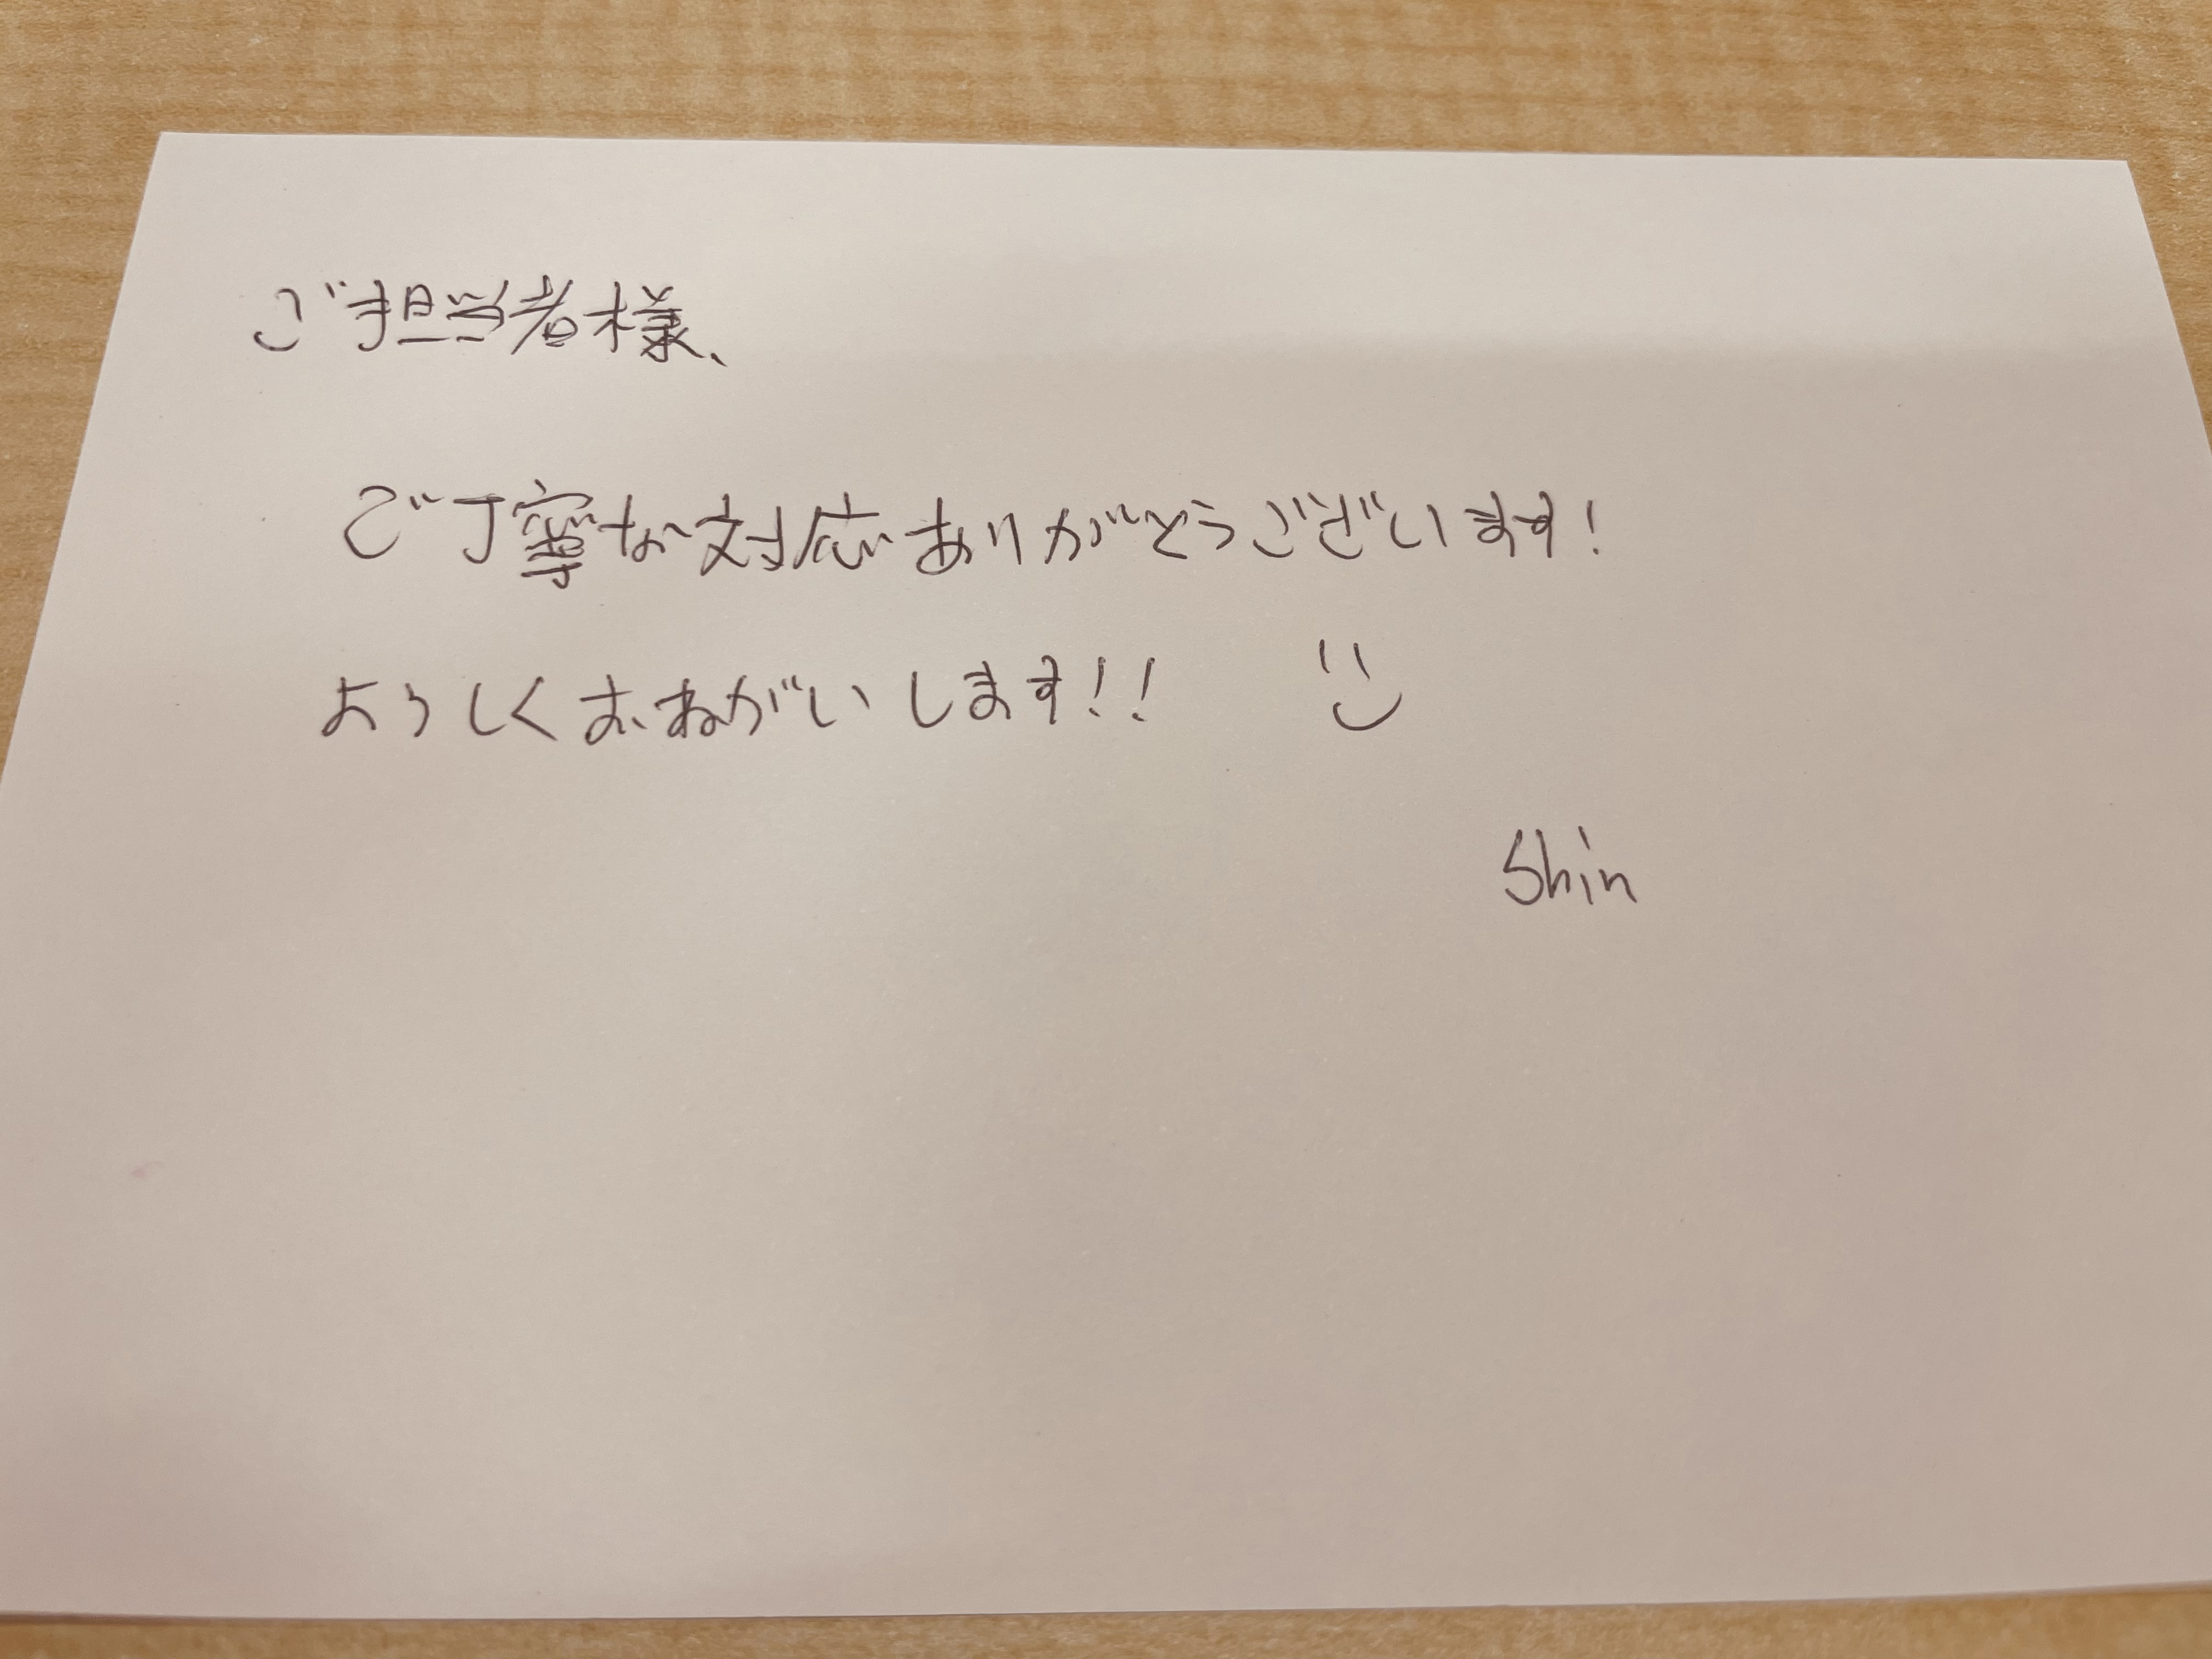 ご担当者様、
ご丁寧な対応ありがとうございます!
よろしくおねがいします!!
Shin